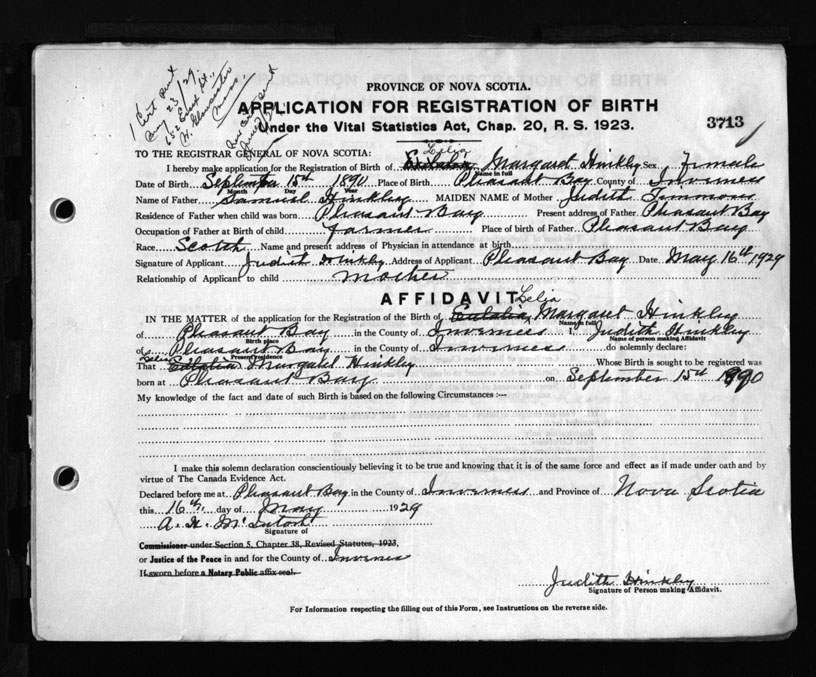 1 Cert sent
Aug 23/29.
652 Essex St.,
Mass
PROVINCE OF NOVA SCOTIA.
APPLICATION FOR REGISTRATION OF BIRTH
Under the Vital Statistics Act, Chap. 20, R. S. 1923.
3713
TO THE REGISTRAR GENERAL OF NOVA SCOTIA:
Lelia
I hereby make application for the Registration of Birth of Eulalia Margaret Hinkley Sex Female
Name in full
Date of Birth September 15th 1890 Place of Birth Pleasant Bay County of Inverness
Month Day Year
Name of Father Samuel Hinkley MAIDEN NAME of Mother Judith Timmons
Residence of Father when child was born Pleasant Bay Present address of Father Pleasant Bay
Occupation of Father at Birth of child Farmer Place of birth of Father Pleasant Bay
Race Scotch Name and present address of Physician in attendance at birth
Signature of Applicant Judith Hinkley Address of Applicant Pleasant Bay Date May 16th 1929
Relationship of Applicant to child Mother
AFFIDAVIT
Lelia
IN THE MATTER of the application for the Registration of the Birth of Eulalia Margaret Hinkley
Name in full
of Pleasant Bay in the County of Inverness I, Judith Hinkley
Birth place Name of person making Affidavit
of Pleasant Bay in the County of Inverness do solemnly declare:
Present residence
Lelia
That Eulalia Margaret Hinkley Whose Birth is sought to be registered was
born at Pleasant Bay on September 15th 1890
My knowledge of the fact and date of such Birth is based on the following Circumstances :—
I make this solemn declaration conscientiously believing it to be true and knowing that it is of the same force and effect as if made under oath and by
virtue of The Canada Evidence Act.
Declared before me at Pleasant Bay in the County of Inverness and Province of Nova Scotia
this 16th day of May 1929
A. H. McIntosh
Signature of
Commissioner under Section 5, Chapter 38, Revised Statutes, 1923,
or Justice of the Peace in and for the County of Inverness
If sworn before a Notary Public affix seal.
Judith Hinkley
Signature of Person making Affidavit.
For Information respecting the filling out of this Form, see Instructions on the reverse side.